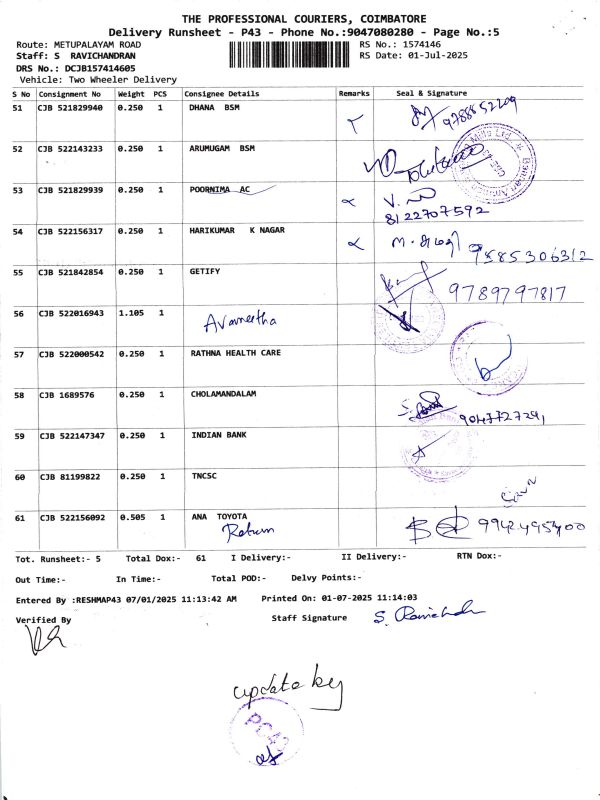 THE PROFESSIONAL COURIERS, COIMBATORE
Delivery Runsheet - P43 - Phone No.:9047080280 - Page No.:5
Route: METUPALAYAM ROAD RS No.: 1574146
Staff: S RAVICHANDRAN RS Date: 01-Jul-2025
DRS No.: DCJB157414605
Vehicle: Two Wheeler Delivery
S No Consignment No Weight PCS Consignee Details Remarks Seal & Signature
51 CJB 521829940 0.250 1 DHANA BSM 9788852209
52 CJB 522143233 0.250 1 ARUMUGAM BSM
53 CJB 521829939 0.250 1 POORNIMA AC
8122707592
54 CJB 522156317 0.250 1 HARIKUMAR K NAGAR
9585306312
55 CJB 521842854 0.250 1 GETIFY
9789797817
56 CJB 522016943 1.105 1
57 CJB 522000542 0.250 1 RATHNA HEALTH CARE
58 CJB 1689576 0.250 1 CHOLAMANDALAM
9047727291
59 CJB 522147347 0.250 1 INDIAN BANK
60 CJB 81199822 0.250 1 TNCSC
61 CJB 522156092 0.505 1 ANA TOYOTA
Return 9942495400
Tot. Runsheet:- 5 Total Dox:- 61 I Delivery:- II Delivery:- RTN Dox:-
Out Time:- In Time:- Total POD:- Delvy Points:-
Entered By :RESHMAP43 07/01/2025 11:13:42 AM Printed On: 01-07-2025 11:14:03
Verified By Staff Signature S. Ravichandran
update by
PC43